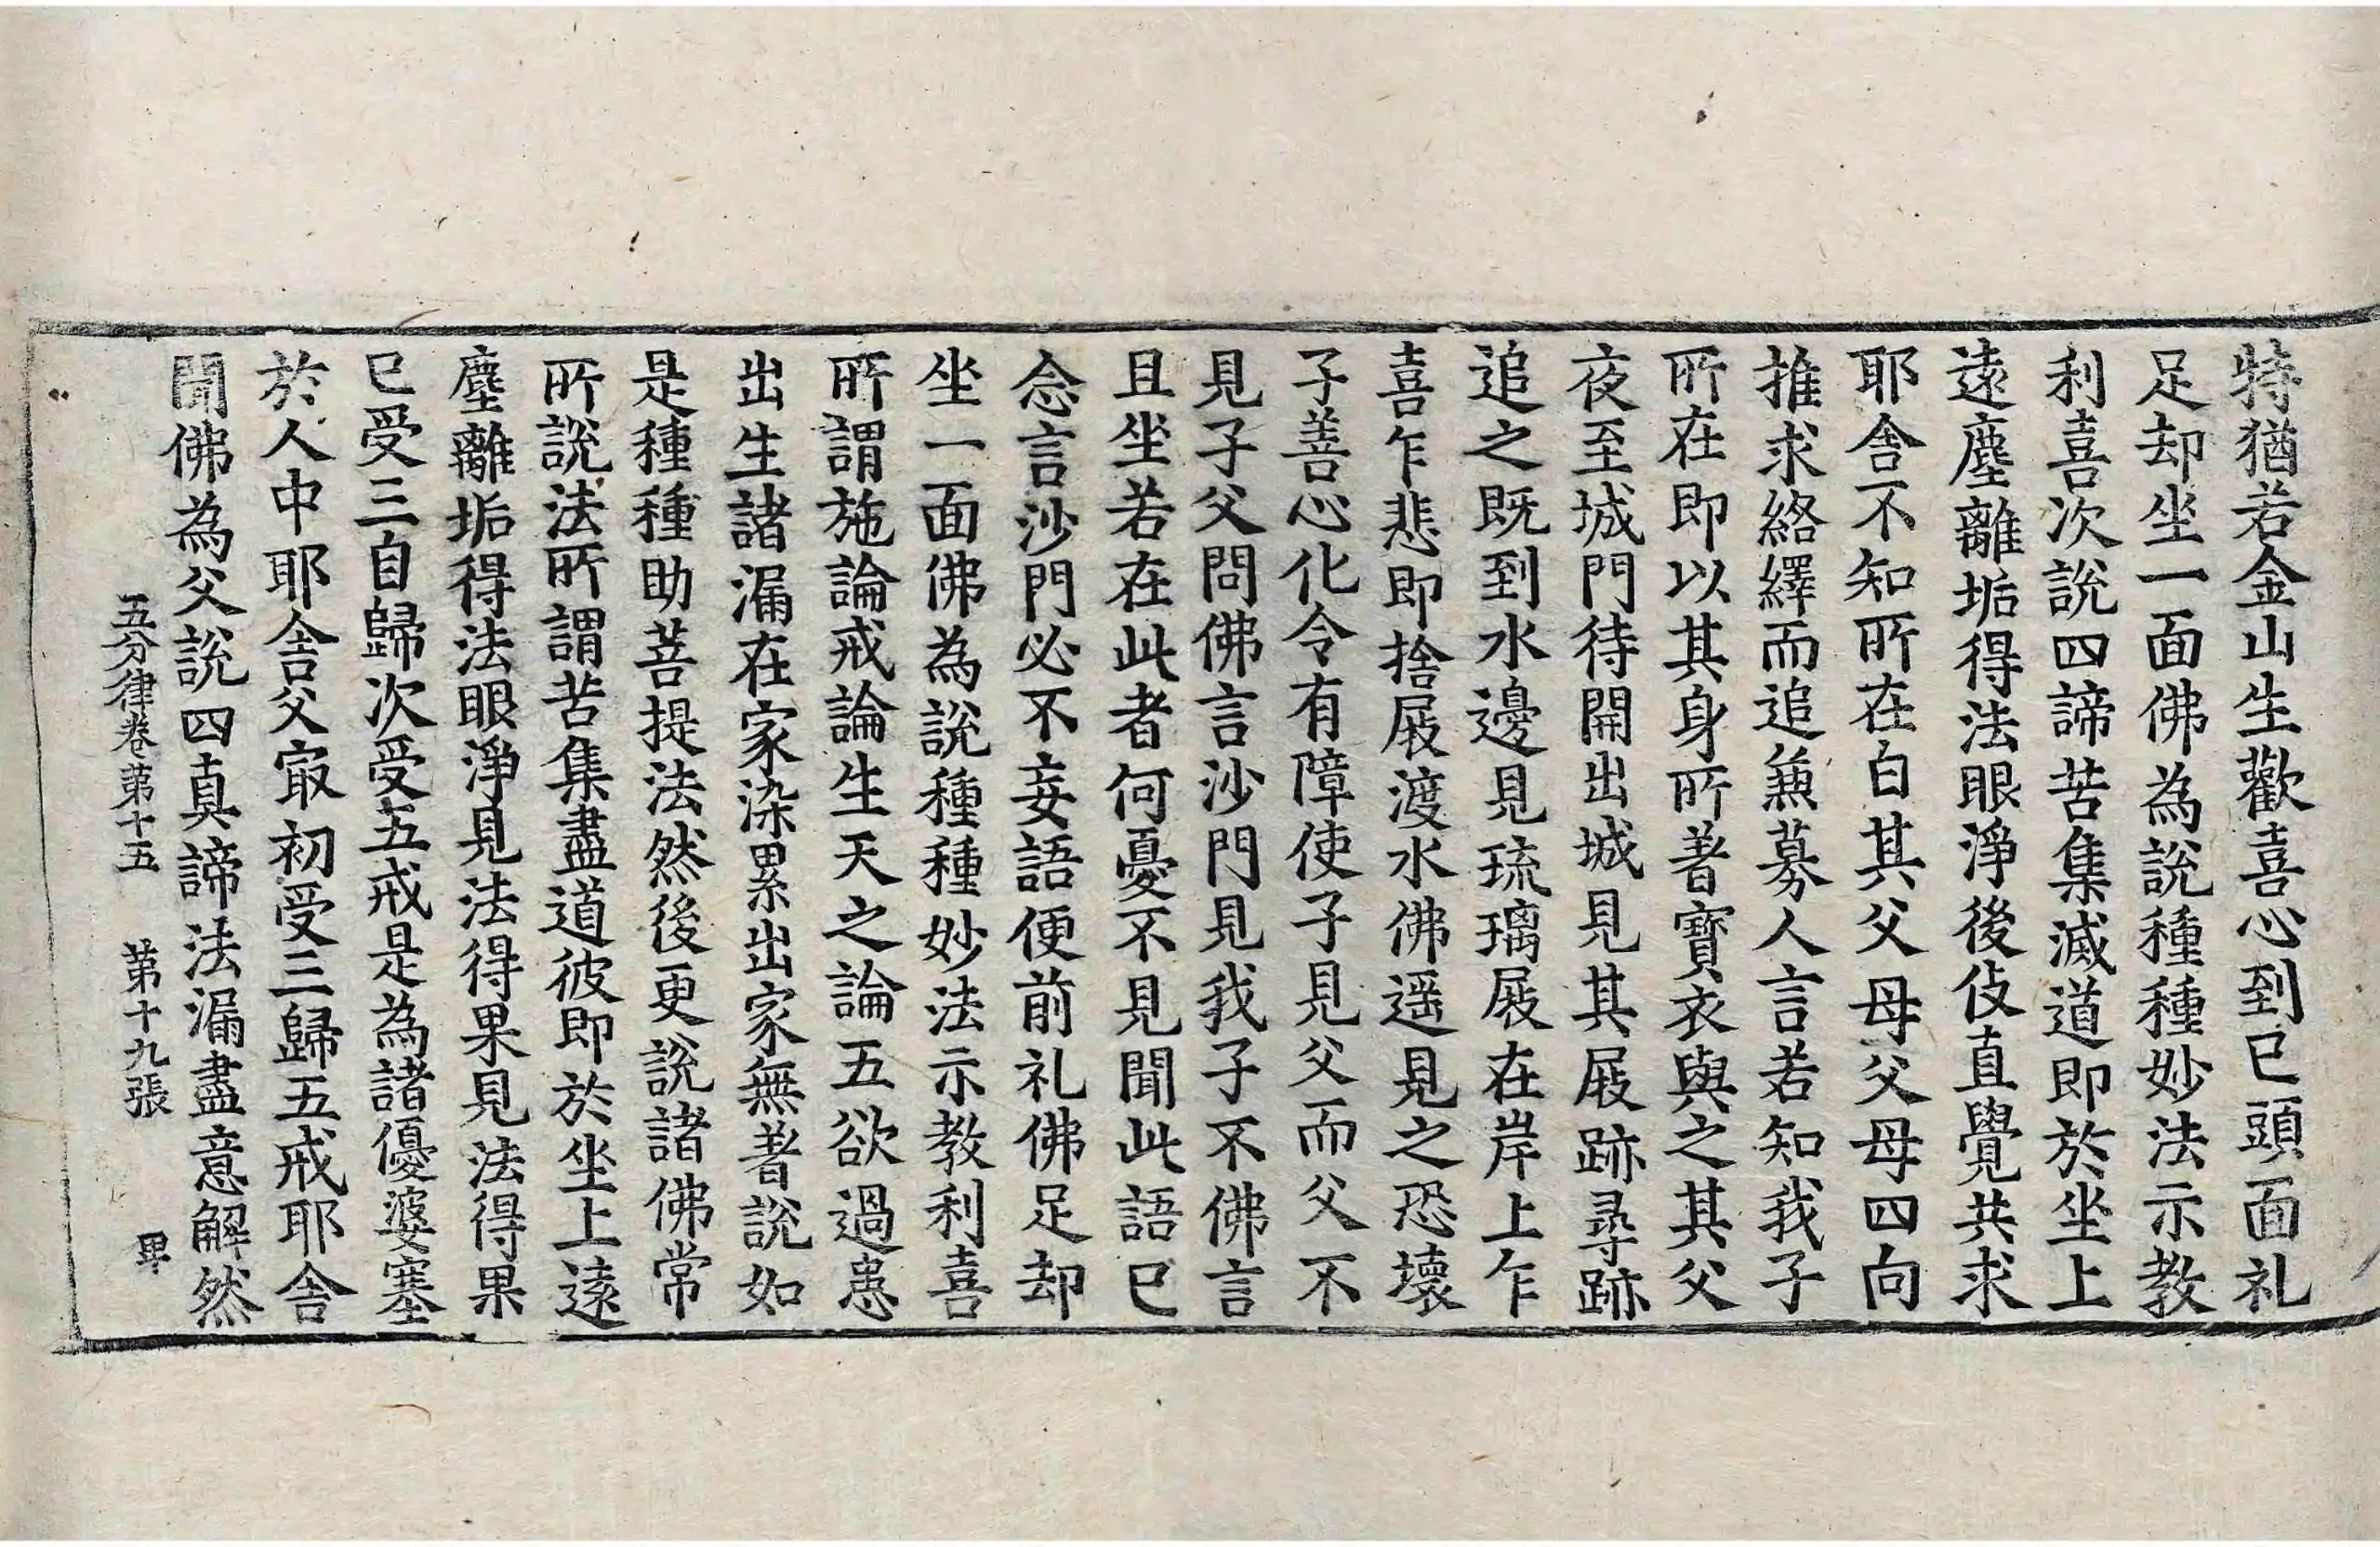 特猶若金山生歡喜心到已頭面礼
足却坐一面佛為說種種妙法示教
利喜次說四諦苦集滅道即於坐上
遠塵離垢得法眼淨後伎直覺共求
耶舍不知所在白其父母父母四向
推求絡繹而追兼募人言若知我子
所在即以其身所著寶衣與之其父
夜至城門待開出城見其屐跡尋跡
追之既到水邊見琉璃屐在岸上乍
喜乍悲即捨屐渡水佛遥見之恐壞
子善心化令有障使子見父而父不
見子父問佛言沙門見我子不佛言
且坐若在此者何憂不見聞此語已
念言沙門必不妄語便前礼佛足却
坐一面佛為說種種妙法示教利喜
所謂施論戒論生天之論五欲過患
出生諸漏在家染累出家無著說如
是種種助菩提法然後更說諸佛常
所說法所謂苦集盡道彼即於坐上遠
塵離垢得法眼淨見法得果見法得果
已受三自歸次受五戒是為諸優婆塞
於人中耶舍父㝡初受三歸五戒耶舍
聞佛為父說四真諦法漏盡意解然
五分律卷第十五 第十九張